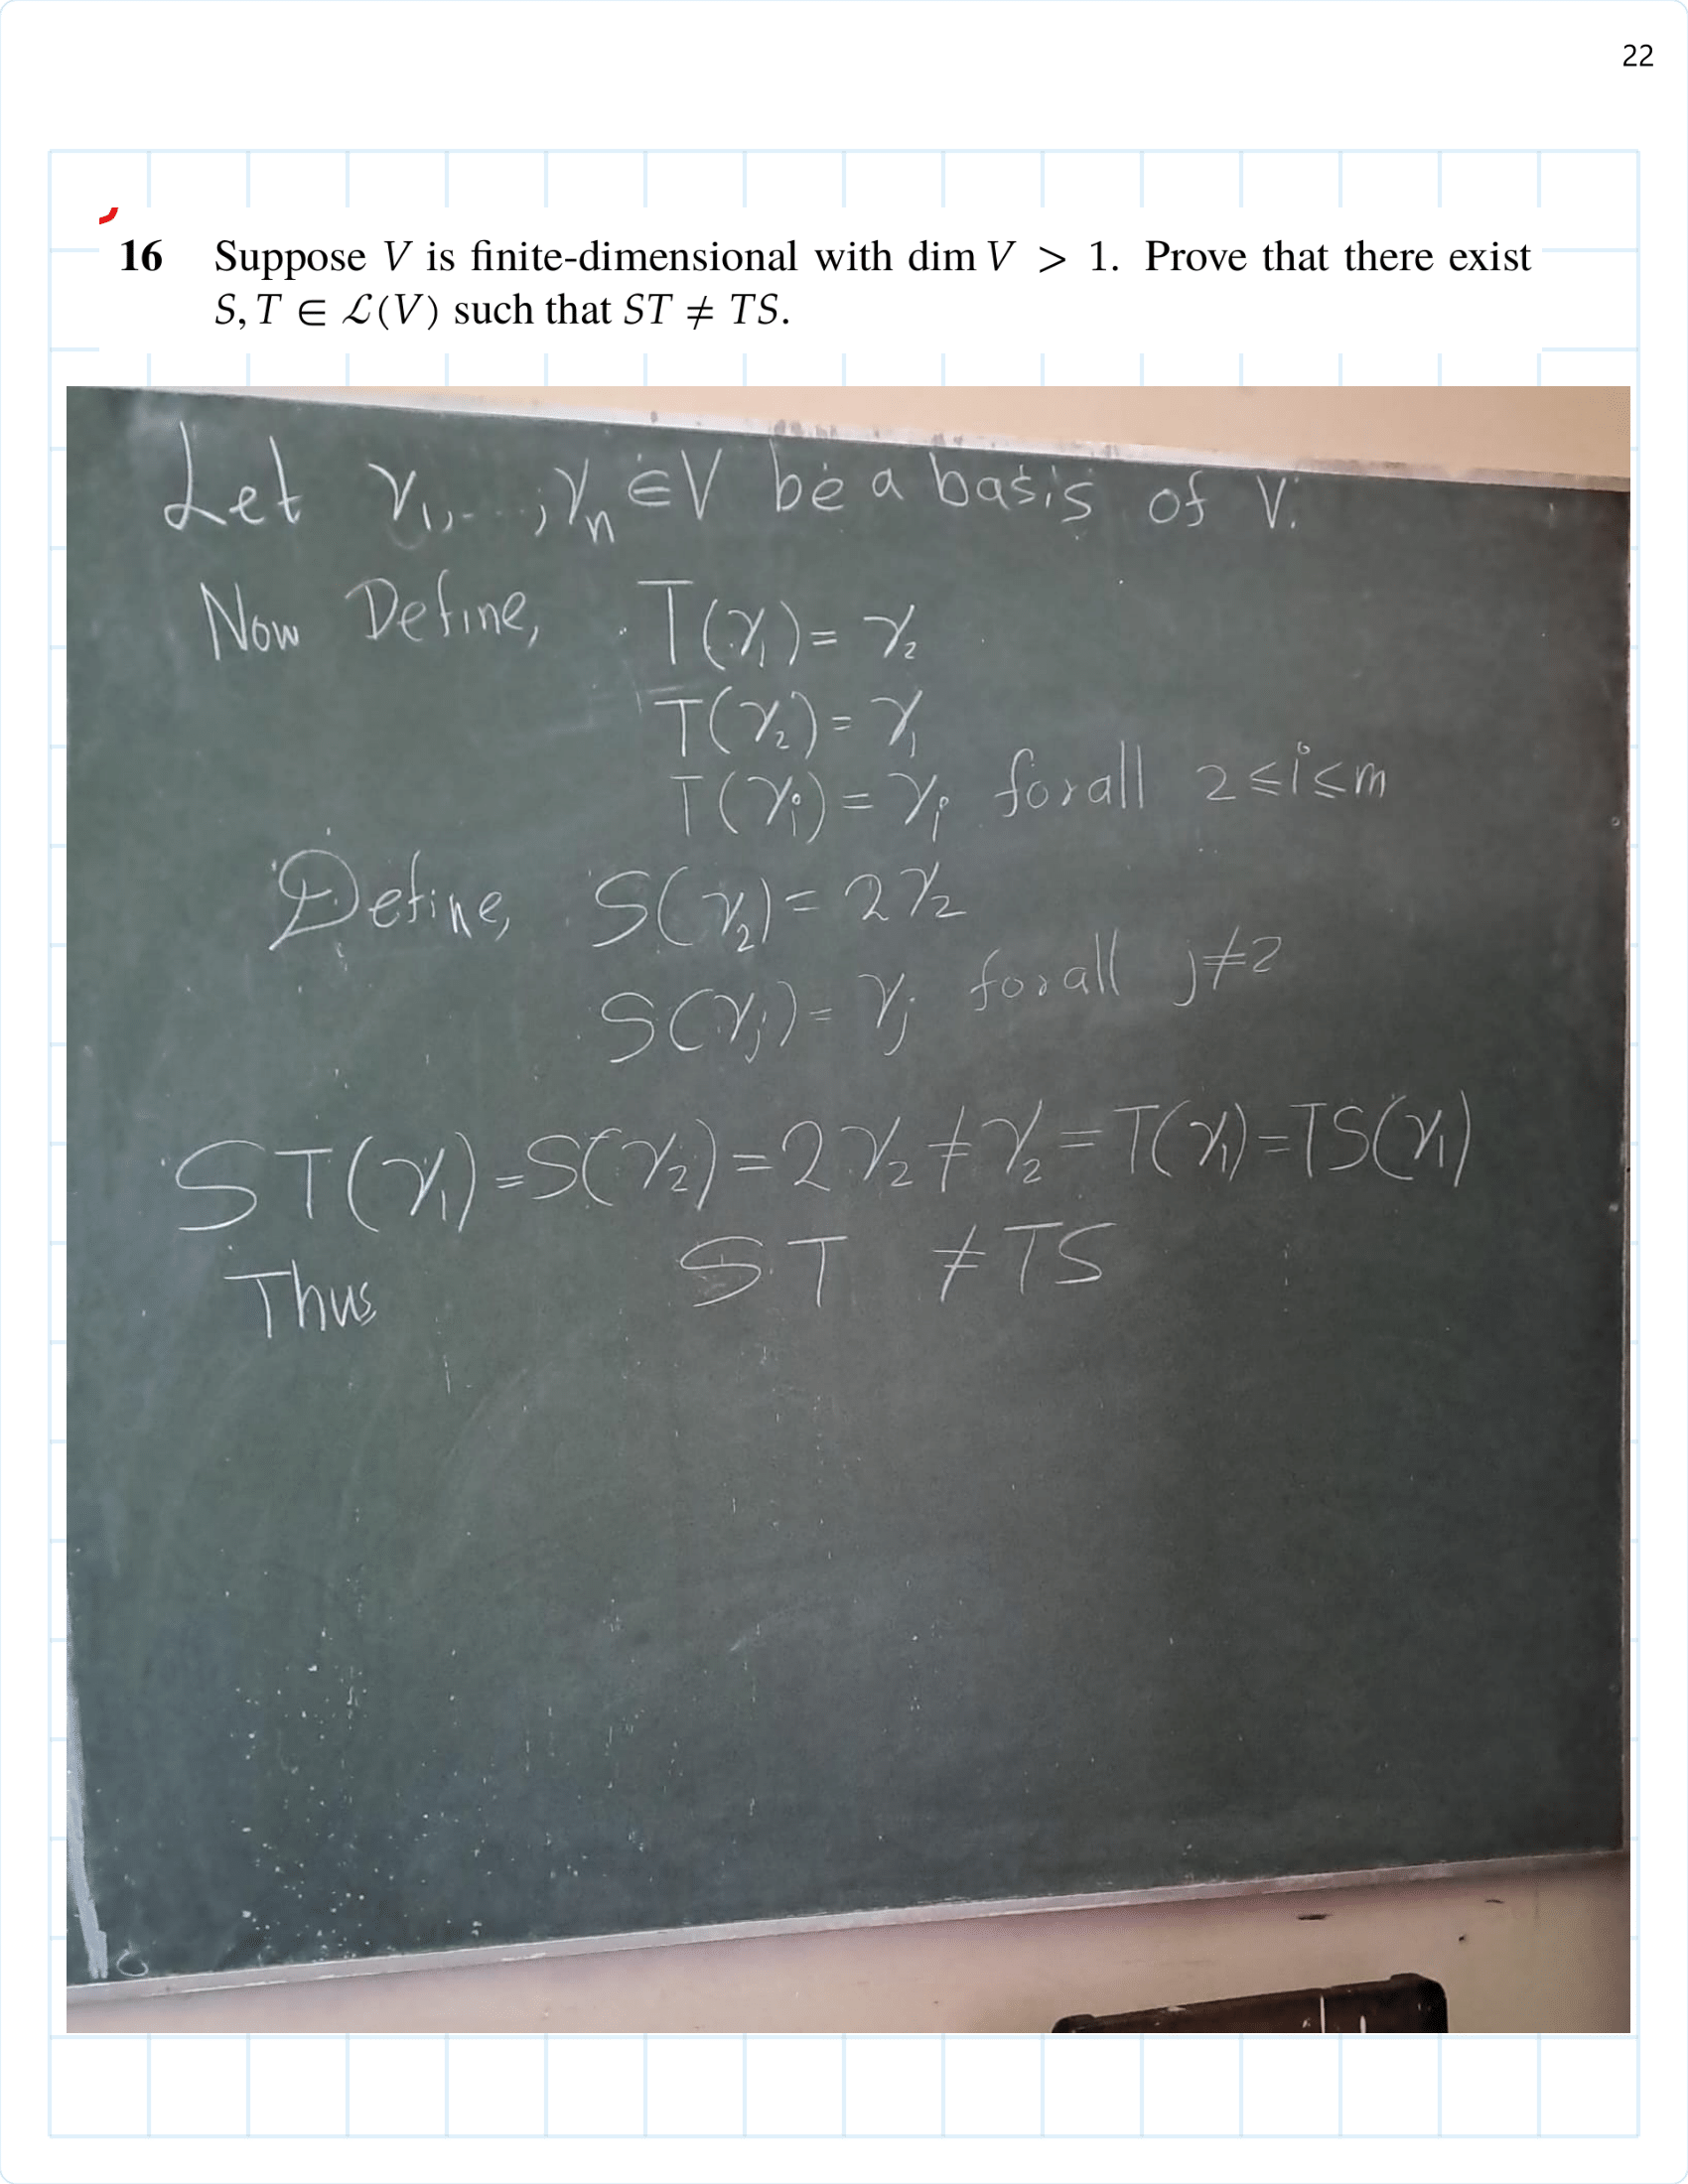 22
16 Suppose V is finite-dimensional with dim V > 1. Prove that there exist
S, T ∈ ℒ(V) such that ST ≠ TS.
Let γ₁, ..., γₙ ∈ V be a basis of V.
Now Define, T(γ₁) = γ₂
T(γ₂) = γ₁
T(γᵢ) = γᵢ for all 2 ≤ i ≤ m
Define, S(γ₂) = 2γ₂
S(γⱼ) = γⱼ for all j ≠ 2
ST(γ₁) = S(γ₂) = 2γ₂ ≠ γ₂ = T(γ₁) = TS(γ₁)
Thus ST ≠ TS